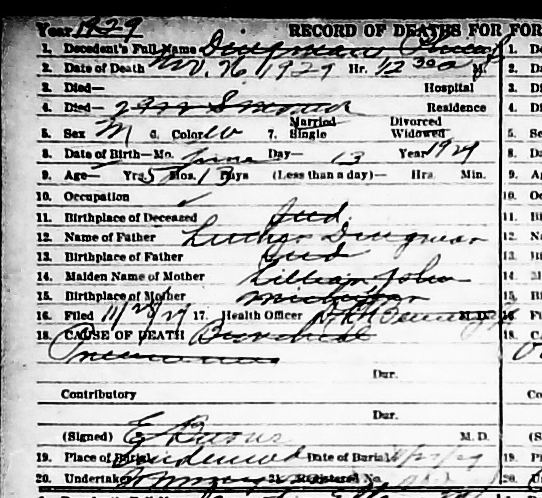 Year 1929 RECORD OF DEATHS FOR FOR
1. Decedent's Full Name Dingman 1.
2. Date of Death Nov. 26 1929 Hr. 12 30 a M. 2.
3. Died— Hospital 3.
4. Died— Residence 4.
5. Sex M 6. Color W 7. Married Single Divorced Widowed 5.
8. Date of Birth—Mo. June Day— 13 Year 1929 8.
9. Age— Yrs. 5 Mos. 13 Days (Less than a day)— Hrs. Min. 9.
10. Occupation ✓ 10.
11. Birthplace of Deceased Ind. 11.
12. Name of Father Luther Dingman 12.
13. Birthplace of Father Ind 13.
14. Maiden Name of Mother Lillian John 14.
15. Birthplace of Mother Michigan 15.
16. Filed 11/28/29 17. Health Officer M. D. 16.
18. CAUSE OF DEATH Bronchial 18.
Pneumonia
Dur.
Contributory Co
Dur.
(Signed) E Burns M. D. (S
19. Place of Burial Date of Burial 19.
20. Undertaker 21. Registered No. 20.